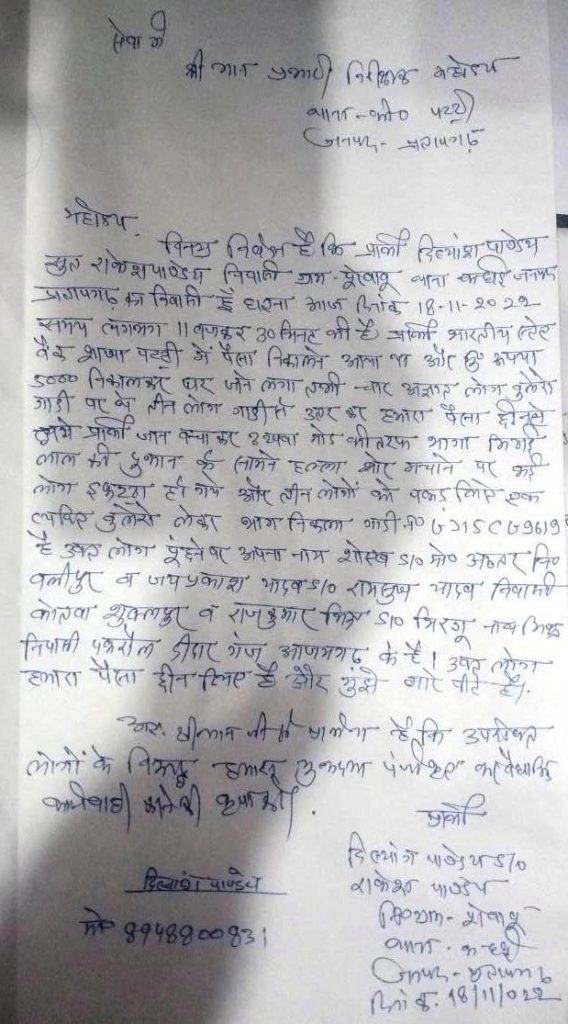 सेवा में
श्री मान प्रभारी निरीक्षक महोदय
थाना - को० पट्टी
जनपद - प्रतापगढ़
महोदय,
विनम्र निवेदन है कि प्रार्थी दिव्यांश पाण्डेय
सुत राकेश पाण्डेय निवासी ग्राम - थाना कन्धई जनपद
प्रतापगढ़ का निवासी है घटना आज दिनांक 18-11-2022
समय लगभग 11 बजकर 30 मिनट की है प्रार्थी भारतीय स्टेट
बैंक शाखा पट्टी में पैसा निकालने आया था और रुपया
5000 निकालकर घर जाने लगा तभी चार अज्ञात लोग बुलेरो
गाड़ी पर थे तीन लोग गाड़ी से उतर कर हमारा पैसा छीनने
लगे प्रार्थी जान बचाकर मोड़ की तरफ भागा
लाल की दुकान के सामने हल्ला शोर मचाने पर कई
लोग इकट्ठा हो गये और तीन लोगों को पकड़ लिए एक
व्यक्ति बुलेरो लेकर भाग निकला गाड़ी नं०
है उक्त लोग पूंछने पर अपना नाम S/O मो० नि०
वलीपुर व जयप्रकाश यादव S/O रामसुख यादव निवासी
शुक्लपुर व राजकुमार मिश्र S/O नाथ मिश्र
निवासी दीदार गंज आजमगढ़ के है। उक्त लोग
हमारा पैसा छीन लिए है और मुझे मारे पीटे है।
अतः श्रीमान जी से प्रार्थना है कि उपरोक्त
लोगों के विरुद्ध हमारा मुकदमा पंजीकृत कर वैधानिक
कार्यवाही करने की कृपा करें।
प्रार्थी
दिव्यांश पाण्डेय S/O
राकेश पाण्डेय
ग्राम -
थाना - कन्धई
जनपद - प्रतापगढ़
दिनांक. 18/11/022
दिव्यांश पाण्डेय
मो० 8948800831